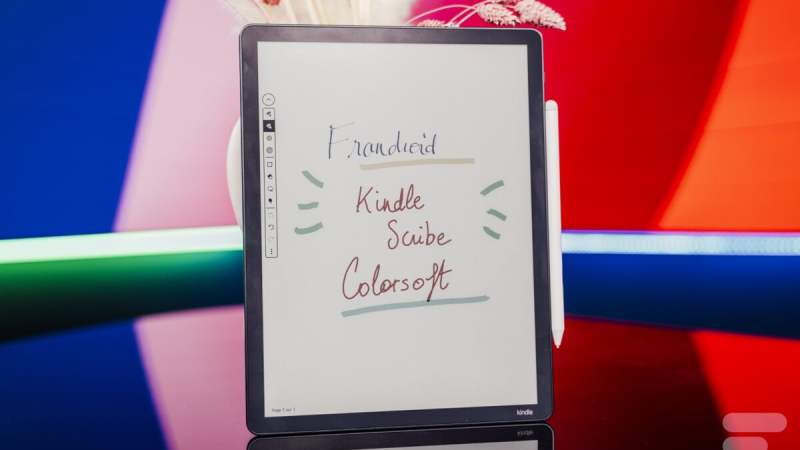 Frandroid
Kindle
Scribe
Colorsoft
Page 1 sur 1
kindle